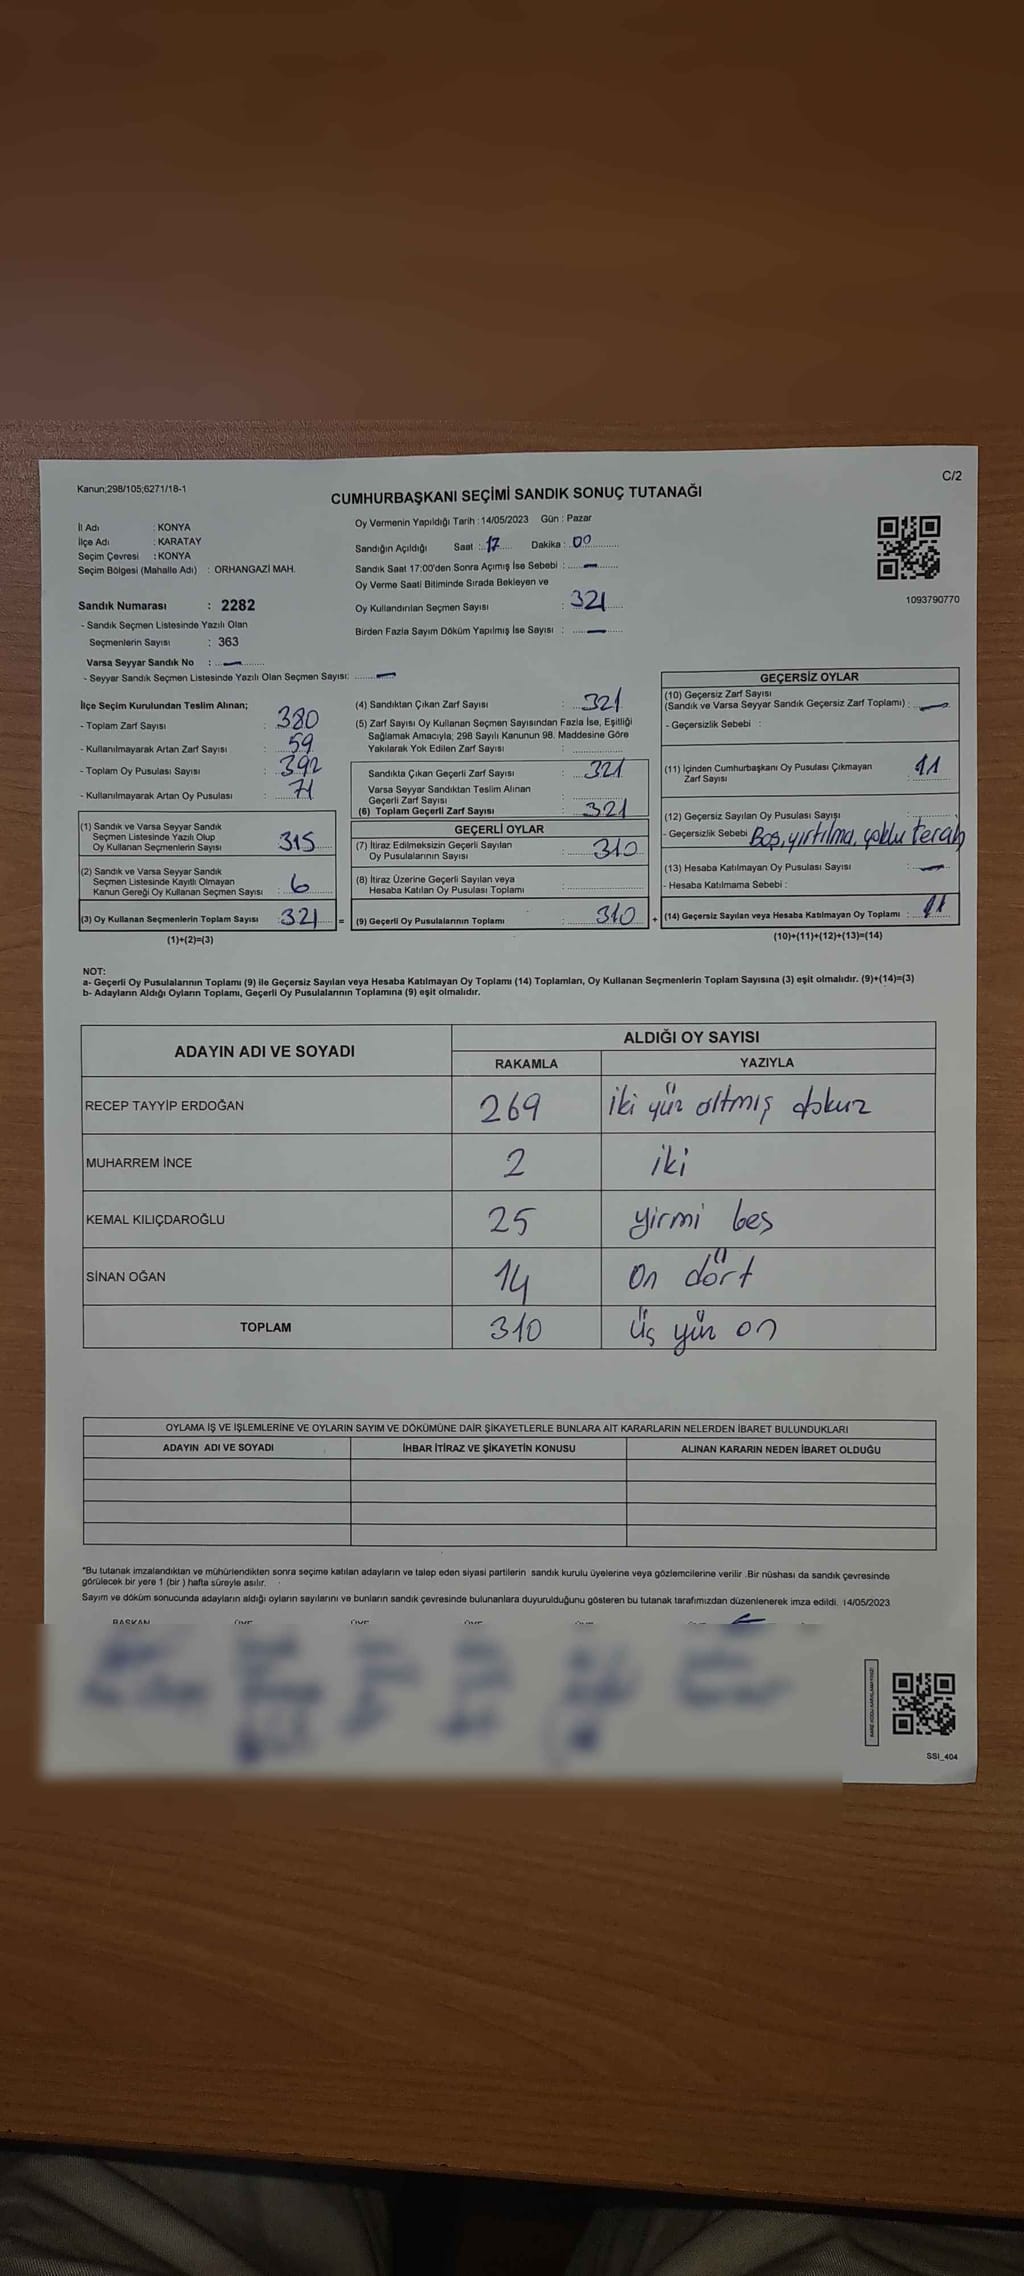 Kanun;298/105;6271/18-1
C/2
CUMHURBAŞKANI SEÇİMİ SANDIK SONUÇ TUTANAĞI
İl Adı : KONYA
İlçe Adı : KARATAY
Seçim Çevresi : KONYA
Seçim Bölgesi (Mahalle Adı) : ORHANGAZİ MAH.
Oy Vermenin Yapıldığı Tarih : 14/05/2023 Gün : Pazar
Sandığın Açıldığı Saat : 17 Dakika : 00
Sandık Saat 17:00'den Sonra Açımış İse Sebebi : —
Oy Verme Saati Bitiminde Sırada Bekleyen ve
Oy Kullandırılan Seçmen Sayısı : 321
Birden Fazla Sayım Döküm Yapılmış İse Sayısı : —
1093790770
Sandık Numarası : 2282
- Sandık Seçmen Listesinde Yazılı Olan
Seçmenlerin Sayısı : 363
Varsa Seyyar Sandık No : —
- Seyyar Sandık Seçmen Listesinde Yazılı Olan Seçmen Sayısı: —
İlçe Seçim Kurulundan Teslim Alınan;
- Toplam Zarf Sayısı : 380
- Kullanılmayarak Artan Zarf Sayısı : 59
- Toplam Oy Pusulası Sayısı : 392
- Kullanılmayarak Artan Oy Pusulası : 71
(1) Sandık ve Varsa Seyyar Sandık
Seçmen Listesinde Yazılı Olup
Oy Kullanan Seçmenlerin Sayısı : 315
(2) Sandık ve Varsa Seyyar Sandık
Seçmen Listesinde Kayıtlı Olmayan
Kanun Gereği Oy Kullanan Seçmen Sayısı : 6
(3) Oy Kullanan Seçmenlerin Toplam Sayısı : 321 =
(1)+(2)=(3)
(4) Sandıktan Çıkan Zarf Sayısı : 321
(5) Zarf Sayısı Oy Kullanan Seçmen Sayısından Fazla İse, Eşitliği
Sağlamak Amacıyla; 298 Sayılı Kanunun 98. Maddesine Göre
Yakılarak Yok Edilen Zarf Sayısı :
Sandıkta Çıkan Geçerli Zarf Sayısı : 321
Varsa Seyyar Sandıktan Teslim Alınan
Geçerli Zarf Sayısı :
(6) Toplam Geçerli Zarf Sayısı : 321
GEÇERLİ OYLAR
(7) İtiraz Edilmeksizin Geçerli Sayılan
Oy Pusulalarının Sayısı : 310
(8) İtiraz Üzerine Geçerli Sayılan veya
Hesaba Katılan Oy Pusulası Toplamı :
(9) Geçerli Oy Pusulalarının Toplamı : 310 +
GEÇERSİZ OYLAR
(10) Geçersiz Zarf Sayısı
(Sandık ve Varsa Seyyar Sandık Geçersiz Zarf Toplamı) : —
- Geçersizlik Sebebi :
(11) İçinden Cumhurbaşkanı Oy Pusulası Çıkmayan
Zarf Sayısı : 11
(12) Geçersiz Sayılan Oy Pusulası Sayısı :
- Geçersizlik Sebebi Boş, yırtılma, çoklu tercih
(13) Hesaba Katılmayan Oy Pusulası Sayısı : —
- Hesaba Katılmama Sebebi :
(14) Geçersiz Sayılan veya Hesaba Katılmayan Oy Toplamı : 11
(10)+(11)+(12)+(13)=(14)
NOT:
a- Geçerli Oy Pusulalarının Toplamı (9) ile Geçersiz Sayılan veya Hesaba Katılmayan Oy Toplamı (14) Toplamları, Oy Kullanan Seçmenlerin Toplam Sayısına (3) eşit olmalıdır. (9)+(14)=(3)
b- Adayların Aldığı Oyların Toplamı, Geçerli Oy Pusulalarının Toplamına (9) eşit olmalıdır.
ADAYIN ADI VE SOYADI
ALDIĞI OY SAYISI
RAKAMLA YAZIYLA
RECEP TAYYİP ERDOĞAN 269 iki yüz altmış dokuz
MUHARREM İNCE 2 iki
KEMAL KILIÇDAROĞLU 25 yirmi beş
SİNAN OĞAN 14 On dört
TOPLAM 310 üç yüz on
OYLAMA İŞ VE İŞLEMLERİNE VE OYLARIN SAYIM VE DÖKÜMÜNE DAİR ŞİKAYETLERLE BUNLARA AİT KARARLARIN NELERDEN İBARET BULUNDUKLARI
ADAYIN ADI VE SOYADI İHBAR İTİRAZ VE ŞİKAYETİN KONUSU ALINAN KARARIN NEDEN İBARET OLDUĞU
*Bu tutanak imzalandıktan ve mühürlendikten sonra seçime katılan adayların ve talep eden siyasi partilerin sandık kurulu üyelerine veya gözlemcilerine verilir .Bir nüshası da sandık çevresinde
görülecek bir yere 1 (bir ) hafta süreyle asılır.
Sayım ve döküm sonucunda adayların aldığı oyların sayılarını ve bunların sandık çevresinde bulunanlara duyurulduğunu gösteren bu tutanak tarafımızdan düzenlenerek imza edildi. 14/05/2023
BAŞKAN ÜYE ÜYE
SSI_404